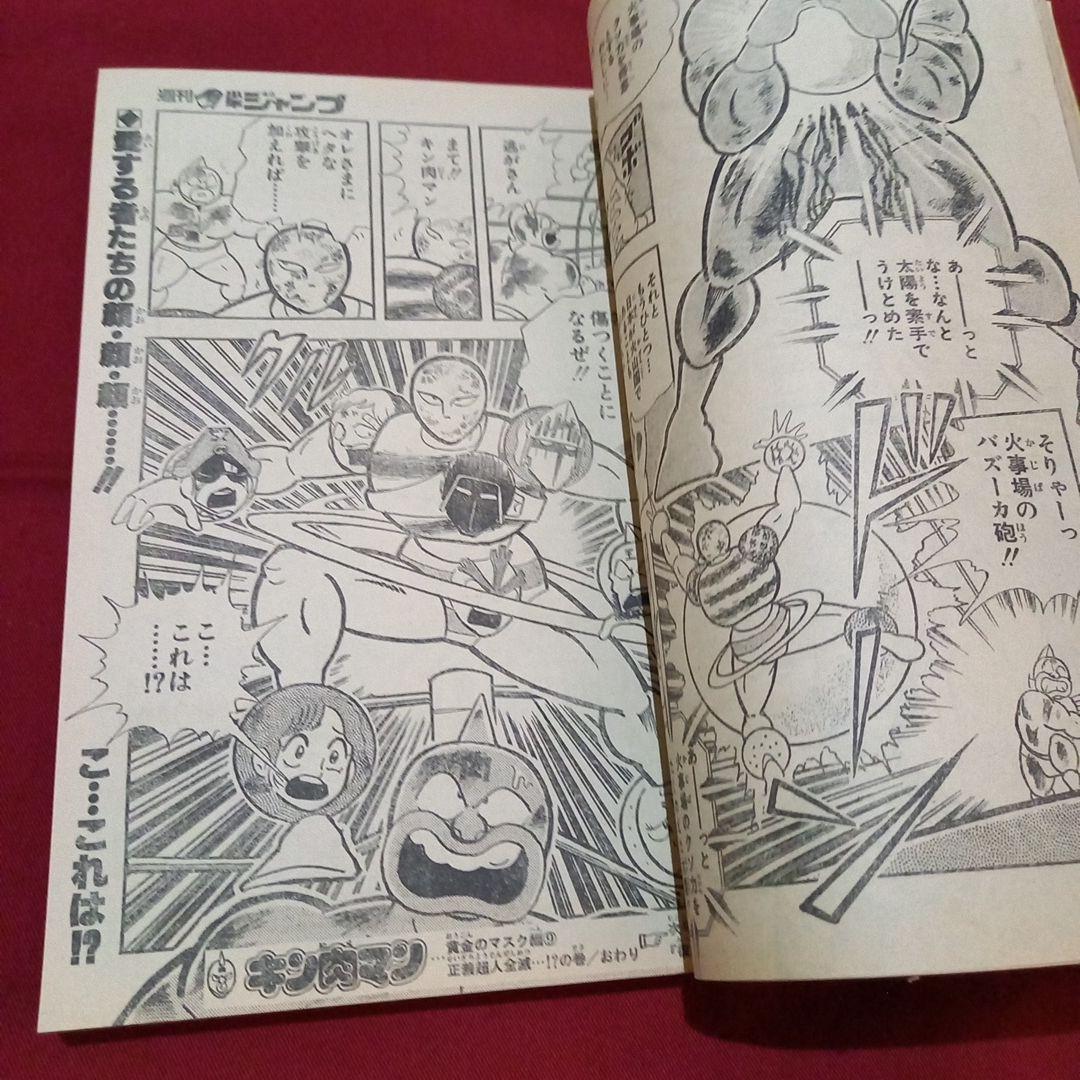 あ――っと
な…なんと
太陽を素手で
うけとめた
――っ!!
そりゃーっ
火事場の
バズーカ砲!!
それと
もうひとつ…
週刊少年ジャンプ
逃がさん
まて!!
キン肉マン
オレさまに
ヘタな
攻撃を
加えれば……
傷つくことに
なるぜ!!
グルル
こ…
これは
……!?
◆愛する者たちの顔・顔・顔……!!
こ…これは!?
キン肉マン
黄金のマスク編⑨
…正義超人全滅…!?の巻/おわり